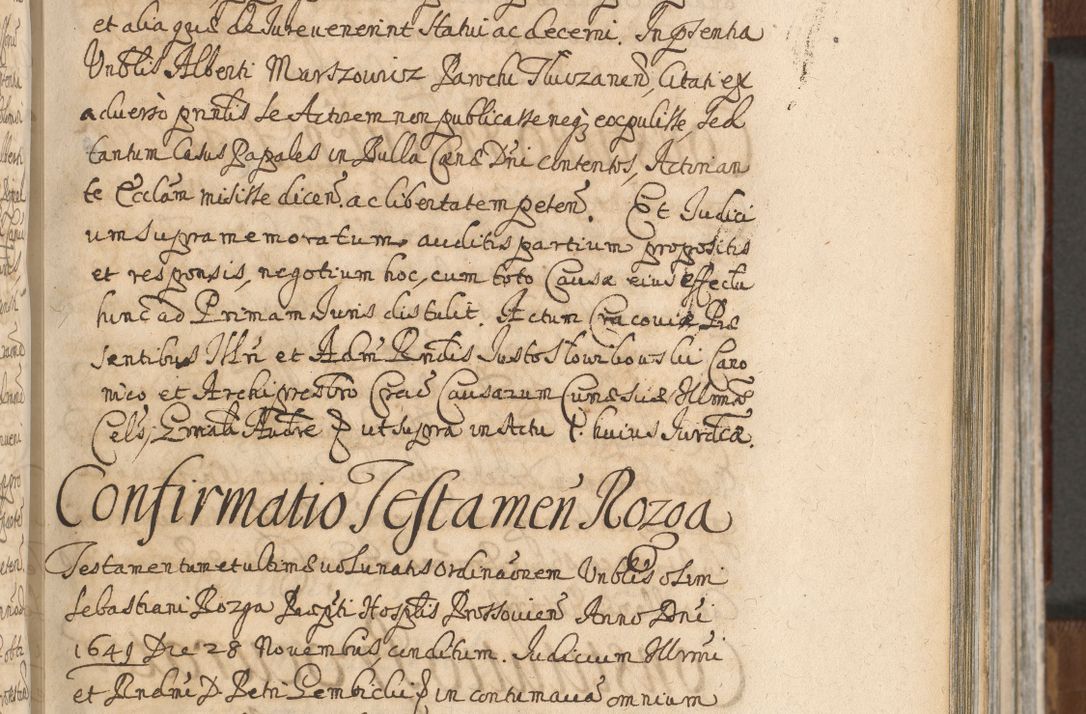 et alia quæ de Jure uenerint Statui ac decerni. In pṡentia
Unblis Alberti Marszowicz Parochi Tluczanen̄, citati ex
aduerso pnntis se Actorem non publicasse neq; excpulisse, sed
tantum Casus Papales in Bulla Cænæ Dn̄i contentos, Actorian
te Ecclām misisse dicen̄. ac libertatem peten̄. Et Judici
um supra memoratum, auditis partium propositis
et responsis, negotium hoc, cum toto Causæ eius effectu
hinc ad Primam Juris distulit. Actum Cracouiæ Præ
sentibus Illr̄i et Adm̄ Rndis Justo Slowikowski Cano
nico et Archipresbro Crac̄ Causarum Curiæ suæ Illrmæ
Cels, Gnrali Audre ꝑ ut supra in Actu 1. huius Jurdicæ.
Confirmatio Testamen̄ Rozga
Testamentum et ultimæ uoluntatis ordinaōnem Unblis olim
Sebastiani Rozga Præpti Hosplis Prossouien̄ Anno Dn̄i
1641 Die 28 Nouembris, conditum. Judicium Illrmi
et Rndmi D. Petri Gembicki ꝑ in contumatia omnium